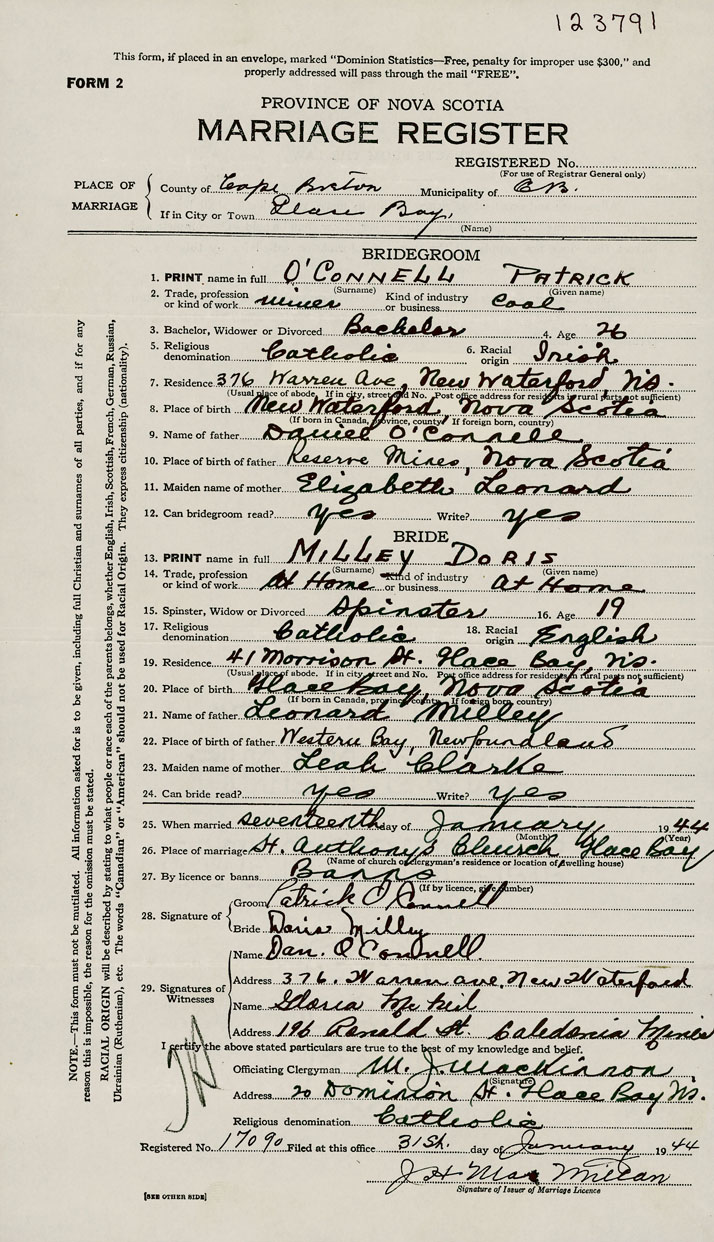 123791
This form, if placed in an envelope, marked "Dominion Statistics—Free, penalty for improper use $300," and
properly addressed will pass through the mail "FREE".
FORM 2
PROVINCE OF NOVA SCOTIA
MARRIAGE REGISTER
REGISTERED No.
(For use of Registrar General only)
PLACE OF MARRIAGE
County of Cape Breton Municipality of C.B.
If in City or Town Glace Bay,
(Name)
BRIDEGROOM
1. PRINT name in full O'CONNELL PATRICK
(Surname) (Given name)
2. Trade, profession or kind of work miner Kind of industry or business Coal
3. Bachelor, Widower or Divorced Bachelor 4. Age 26
5. Religious denomination Catholic 6. Racial origin Irish
7. Residence 376 Warren Ave, New Waterford, N.S.
(Usual place of abode. If in city, street and No. Post office address for residents in rural parts not sufficient)
8. Place of birth New Waterford, Nova Scotia
(If born in Canada, province, county If foreign born, country)
9. Name of father Daniel O'Connell
10. Place of birth of father Reserve Mines, Nova Scotia
11. Maiden name of mother Elizabeth Leonard
12. Can bridegroom read? yes Write? yes
BRIDE
13. PRINT name in full MILLEY DORIS
(Surname) (Given name)
14. Trade, profession or kind of work At Home Kind of industry or business At Home
15. Spinster, Widow or Divorced Spinster 16. Age 19
17. Religious denomination Catholic 18. Racial origin English
19. Residence 41 Morrison St. Glace Bay, N.S.
(Usual place of abode. If in city street and No. Post office address for residents in rural parts not sufficient)
20. Place of birth Glace Bay, Nova Scotia
(If born in Canada, province, county If foreign born, country)
21. Name of father Leonard Milley
22. Place of birth of father Western Bay, Newfoundland
23. Maiden name of mother Leah Clarke
24. Can bride read? yes Write? yes
25. When married seventeenth day of January 1944
(Month) (Year)
26. Place of marriage St. Anthony's Church Glace Bay
(Name of church or clergyman's residence or location of dwelling house)
27. By licence or banns Banns
(If by licence, give number)
28. Signature of
Groom Patrick O'Connell
Bride Doris Milley
29. Signatures of Witnesses
Name Dan. O'Connell.
Address 376. Warren ave, New Waterford
Name Gloria McNeil
Address 196 Ronald St. Caledonia Mines
I certify the above stated particulars are true to the best of my knowledge and belief.
Officiating Clergyman M. J. MacKinnon
(Signature)
Address 20 Dominion St. Glace Bay N.S.
Religious denomination Catholic
Registered No. 17090 Filed at this office 31st. day of January 1944
J H MacMillan
Signature of Issuer of Marriage Licence
[SEE OTHER SIDE]
NOTE.—This form must not be mutilated. All information asked for is to be given, including full Christian and surnames of all parties, and if for any
reason this is impossible, the reason for the omission must be stated.
RACIAL ORIGIN will be described by stating to what people or race each of the parents belongs, whether English, Irish, Scottish, French, German, Russian,
Ukrainian (Ruthenian), etc. The words "Canadian" or "American" should not be used for Racial Origin. They express citizenship (nationality).